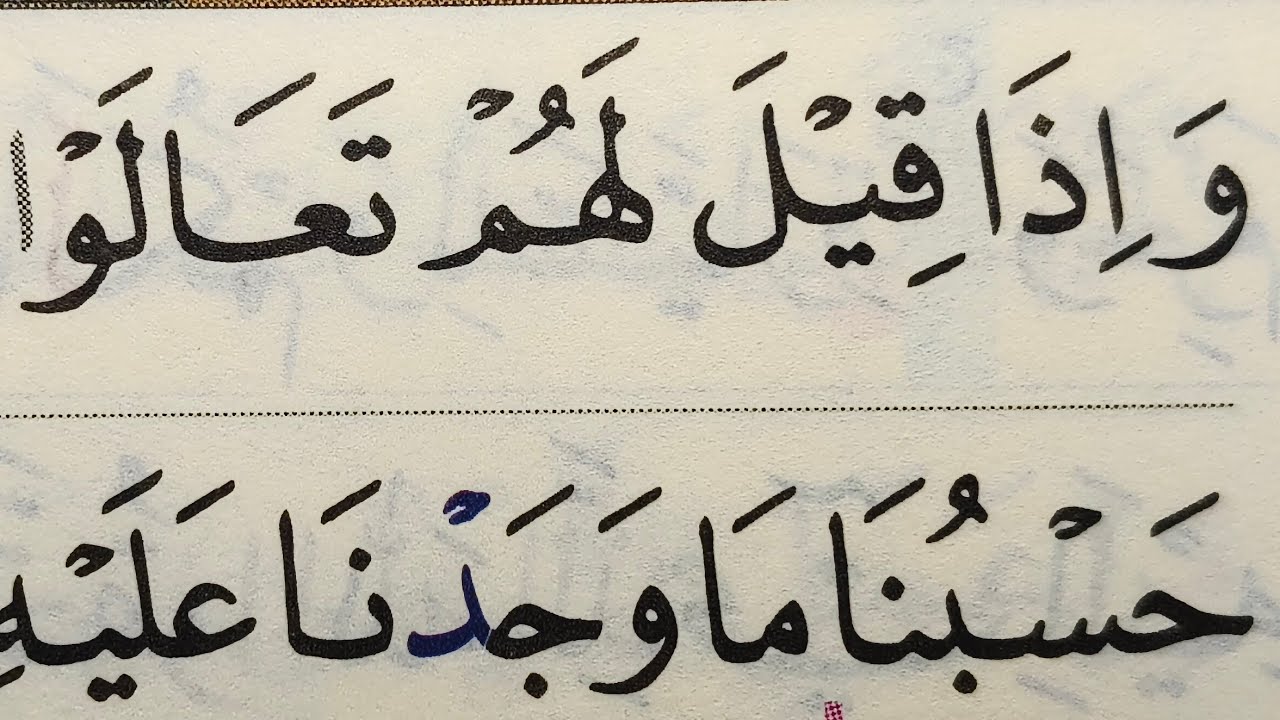 وَ اِذَا قِيْلَ لَهُمْ تَعَالَوْا
حَسْبُنَا مَا وَجَدْنَا عَلَيْهِ